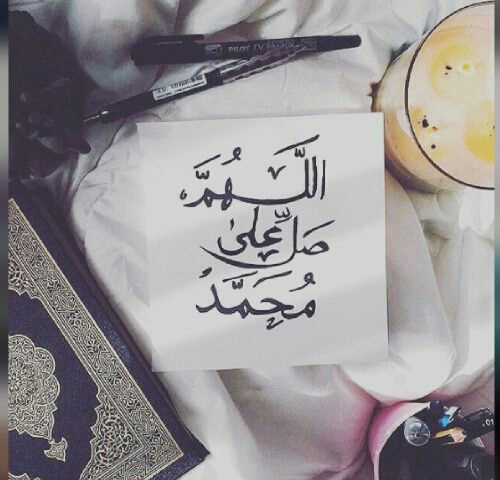 PILOT
اللَّهُمَّ
صَلِّ عَلَىٰ
مُحَمَّدْ